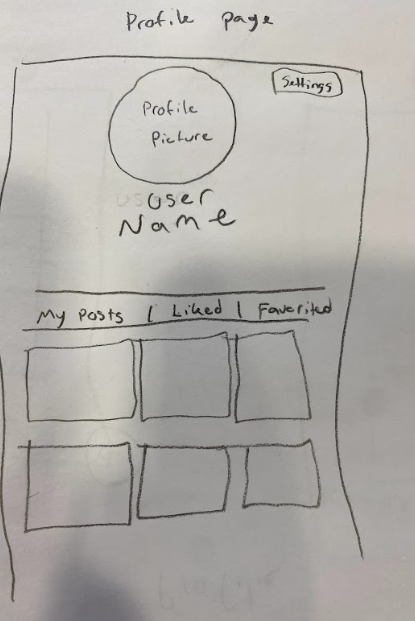 Profile page
Settings
Profile
Picture
User
Name
My Posts | Liked | Favorited